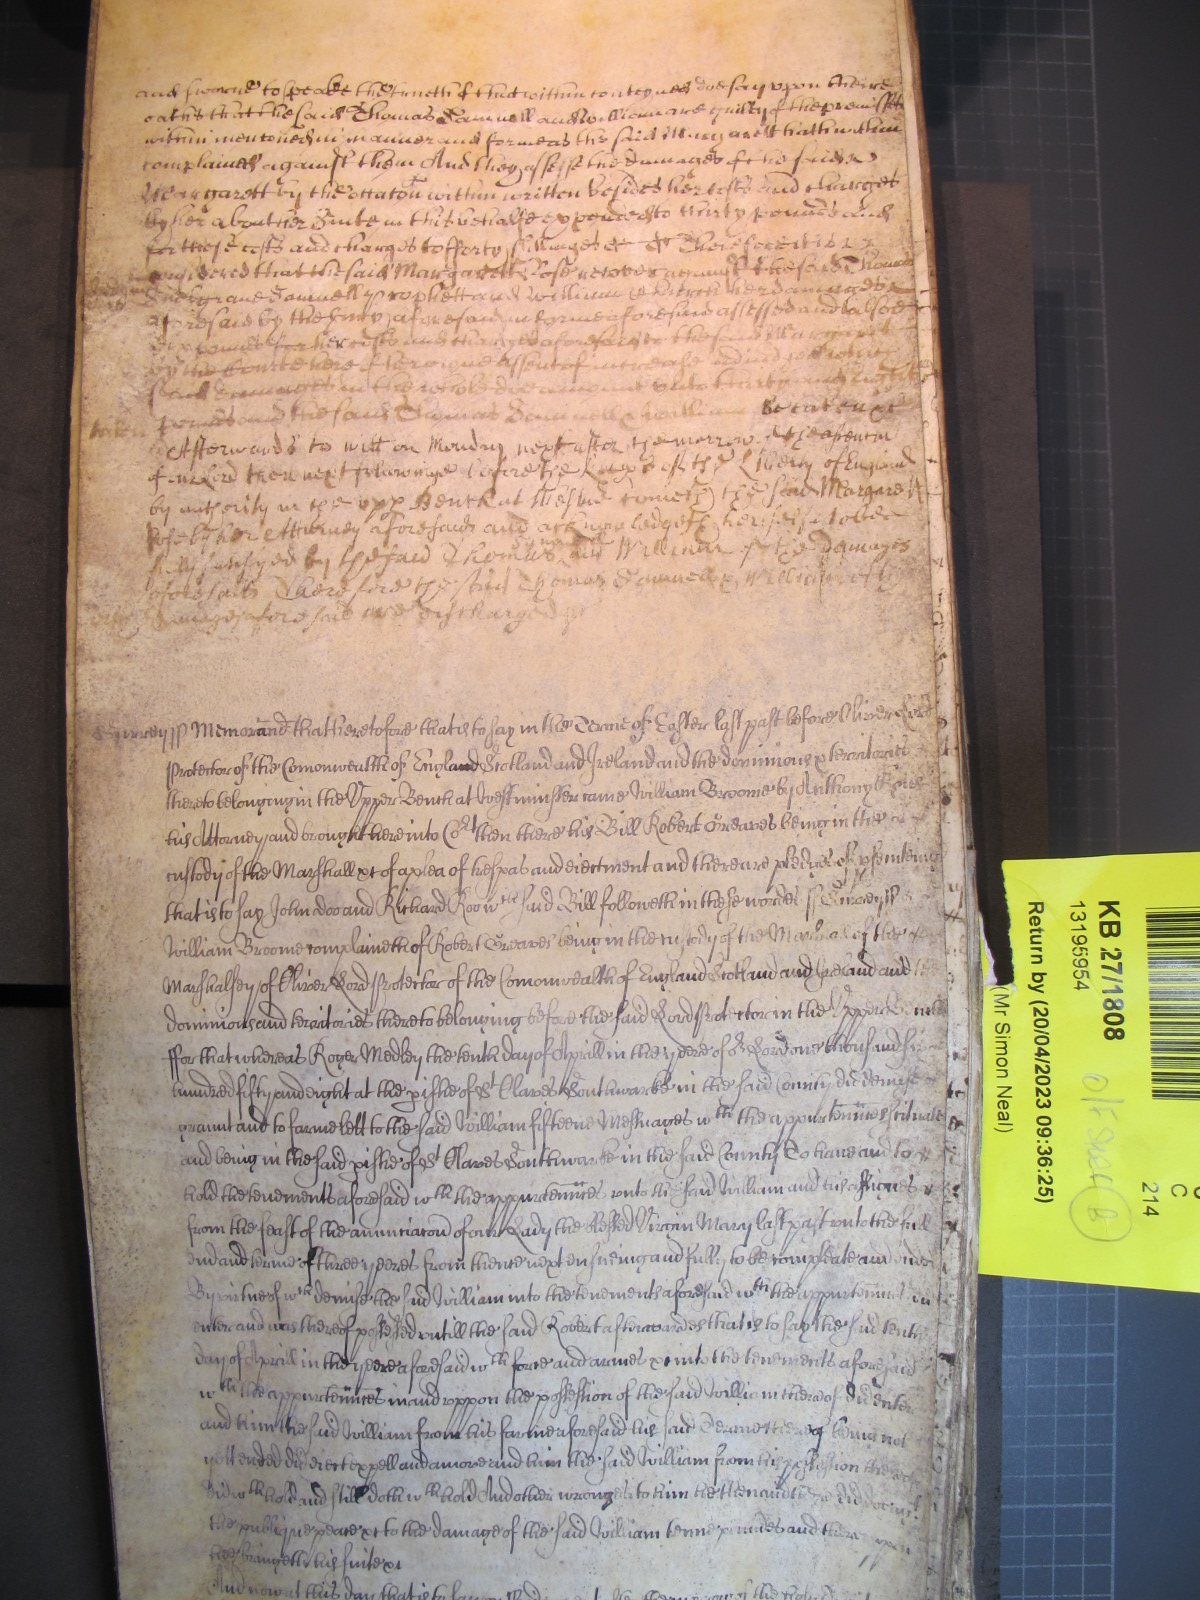 and sworne to speake the trueth of that within conteyned doe say upon theire
oaths that the said Thomas Samwell and William are guilty of the premisses
within mentioned in manner and forme as the said Margarett hath within
complained against them And they assesse the damages of the said
Margarett by the within written besides her costs and charges
by her about her Suite in this behalfe expended to thirty pounds and
for those costs and charges to fforty shillinges &c Therefore it is
considered that the said Margarett Rose recover against the said Thomas
Samwell and William her damages
aforesaid by the Jury aforesaid in forme aforesaid assessed and alsoe
for her costs and charges aforesaid to the said Margarett
by the Courte here of her owne assent of increase adiudged which
said damages in the whole doe amount unto thirty and eight
pounds and the said Thomas Samwell & William be taken &c
Afterwards to witt on Monday next after the morrow of the Ascencion
of our Lord then next followinge before the Keepers of the Liberty of England
by authority in the upp Bench at Westmr cometh the said Margarett
Rose by her Attorney aforesaid and acknowledgeth herselfe to bee
fully satisfyed by the said Thomas and William of the damages
aforesaid Therefore the said Thomas Samwell & William of the
damages aforesaid are discharged &c
Surrey ss Memorand that heretofore that is to say in the Terme of Easter last past before Oliver Lord
Protector of the Comonwealth of England Scotland and Ireland and the dominions & territories
thereto belonging in the Upper Bench at Westminster came William Broome by Anthony
his Attorney and brought here into Cort then there his Bill Robert Greaves being in the
custody of the Marshall &c of a plea of trespas and eiectment and there are pledges of psecuteing
that is to say John Doo and Richard Roo wch said Bill followeth in these wordes ss Surrey ss
William Broome complaineth of Robert Greaves being in the custody of the Marshall of the
Marshalsey of Oliver Lord Protector of the Comonwealth of England Scotland and Ireland and the
dominions and territories thereto belonging before the said Lord Protector in the Upper Bench
ffor that whereas Roger Medley the tenth day of Aprill in the yeere of or Lord one thousand six
hundred fifty and eight at the pishe of St Olaves Southwarke in the said County did demise
graunt and to farme lett to the said William fifteene Messuages wth the appurtennces situate
and being in the said pishe of St Olaves Southwarke in the said County To have and to
hold the tenements aforesaid wth the appurtennces unto the said William and his assignes
from the feast of the annunciacon of our Lady the blessed Virgin Mary last past unto the full
end and terme of three yeeres from thence next ensueing and fully to be compleate and ended
By vertue of wch demise the said William into the tenements aforesaid wth the appurtennces did
enter and was thereof possessed untill the said Robert afterwardes that is to say the said tenth
day of Aprill in the yeere aforesaid wth force and armes &c into the tenements aforesaid
wth the appurtennces in and uppon the possession of the said William thereof did enter
and him the said William from his farme aforesaid his said Terme thereof being not
yett ended did eiect expell and amove and him the said William from his possession thereof
did wthhold and still doth wthhold And other wronges to him then and there did against
the publique peace &c to the damage of the said William tenne poundes and thereupon
hee bringeth his suite &c
And now at this day that is to say
KB 27/1808
13195954
Return by (20/04/2023 09:36:25)
(Mr Simon Neal)
C
214